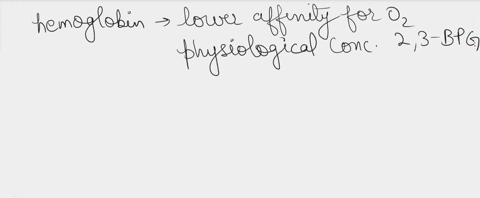 hemoglobin → lower affinity for O₂
physiological conc. 2,3-BPG